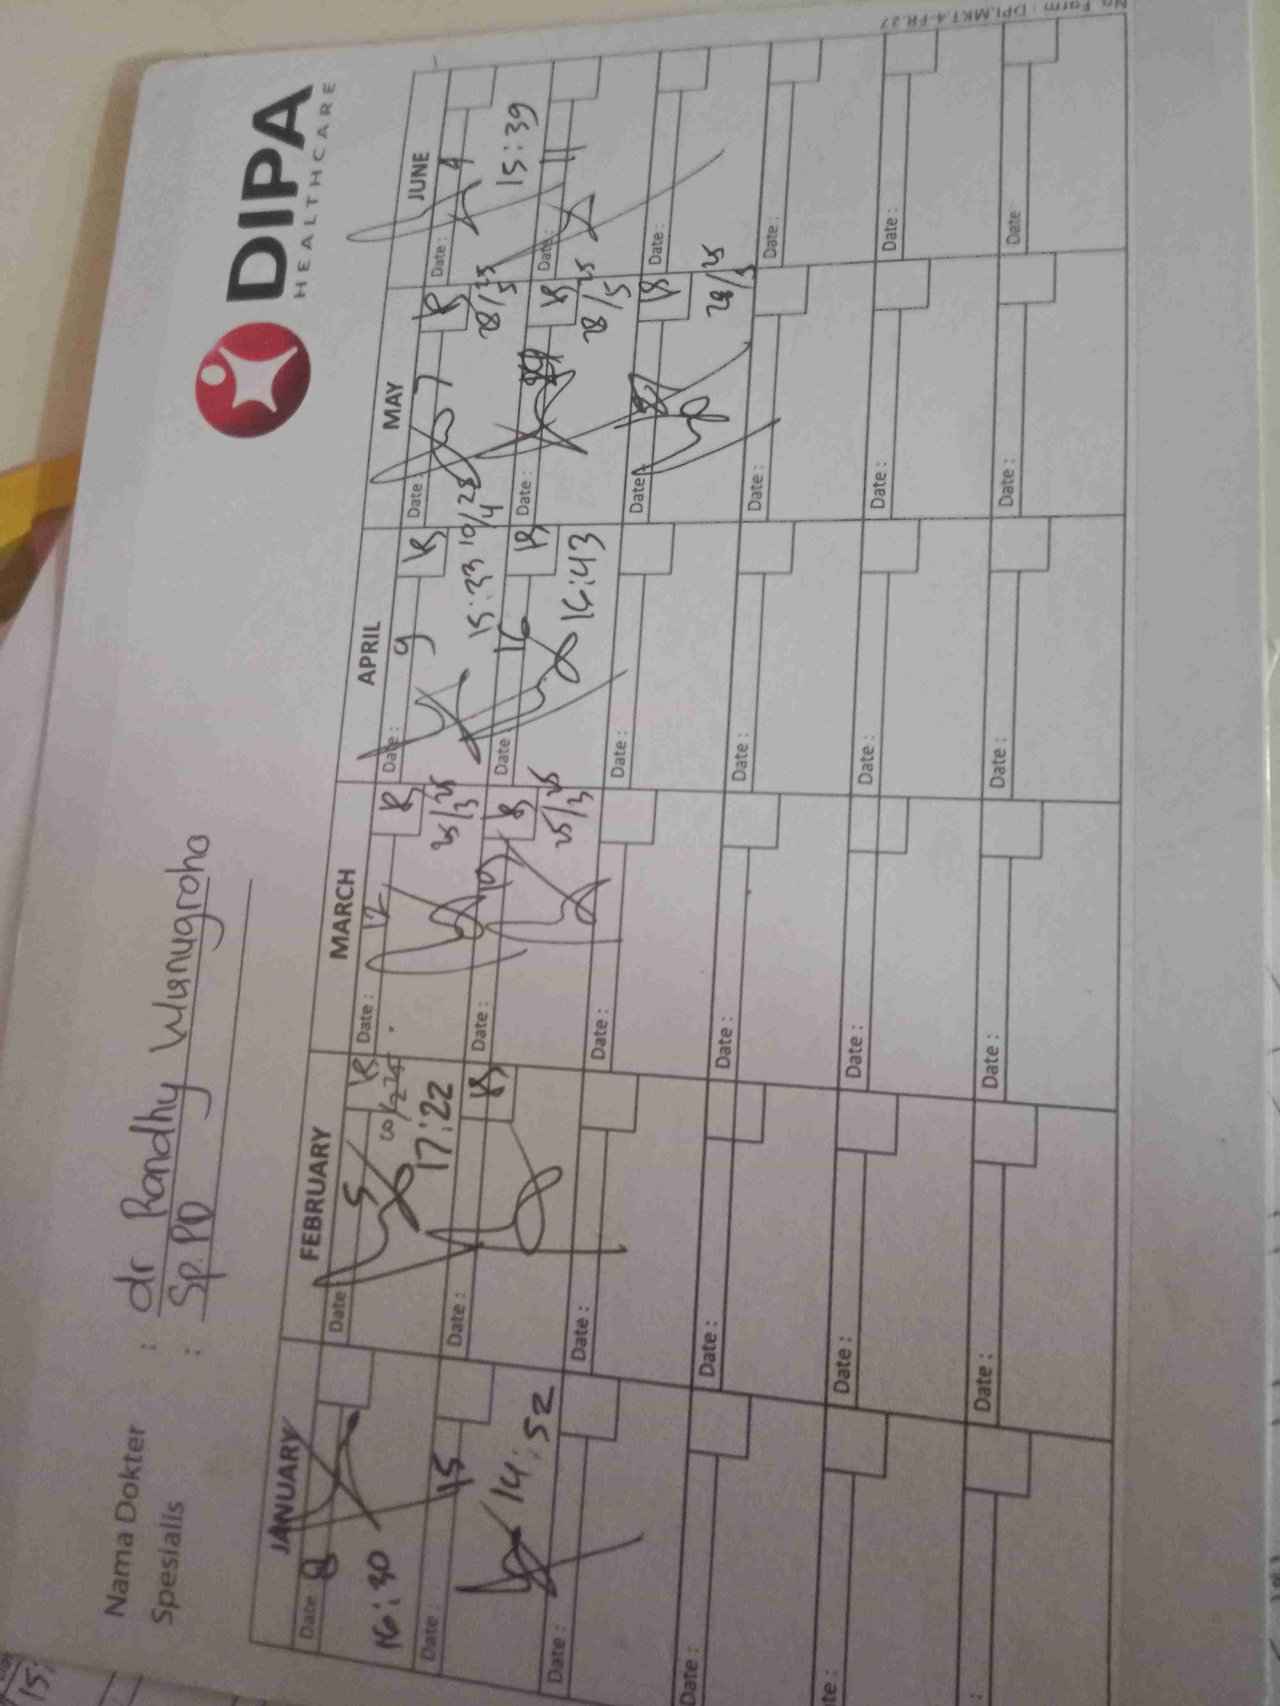 DIPA
HEALTHCARE
Nama Dokter : dr Randhy Wisnugroho
Spesialis : Sp.PD
JANUARY FEBRUARY MARCH APRIL MAY JUNE
Date: 8 Date: 5 Date: 12 Date: 9 Date: 7 Date: 4
16:30 17:22 25/3 25 15:33 10/4 28/5 25 15:39
Date: 15 Date: Date: 19 Date: 16 Date: Date: 11
14:52 25/3 25 28/5 25
Date: Date: Date: Date: Date: Date:
28/5 25
Date: Date: Date: Date: Date: Date:
te: Date: Date: Date: Date: Date:
: Date: Date: Date: Date: Date
No Form : DPI.MKT.4-FR.27
15: